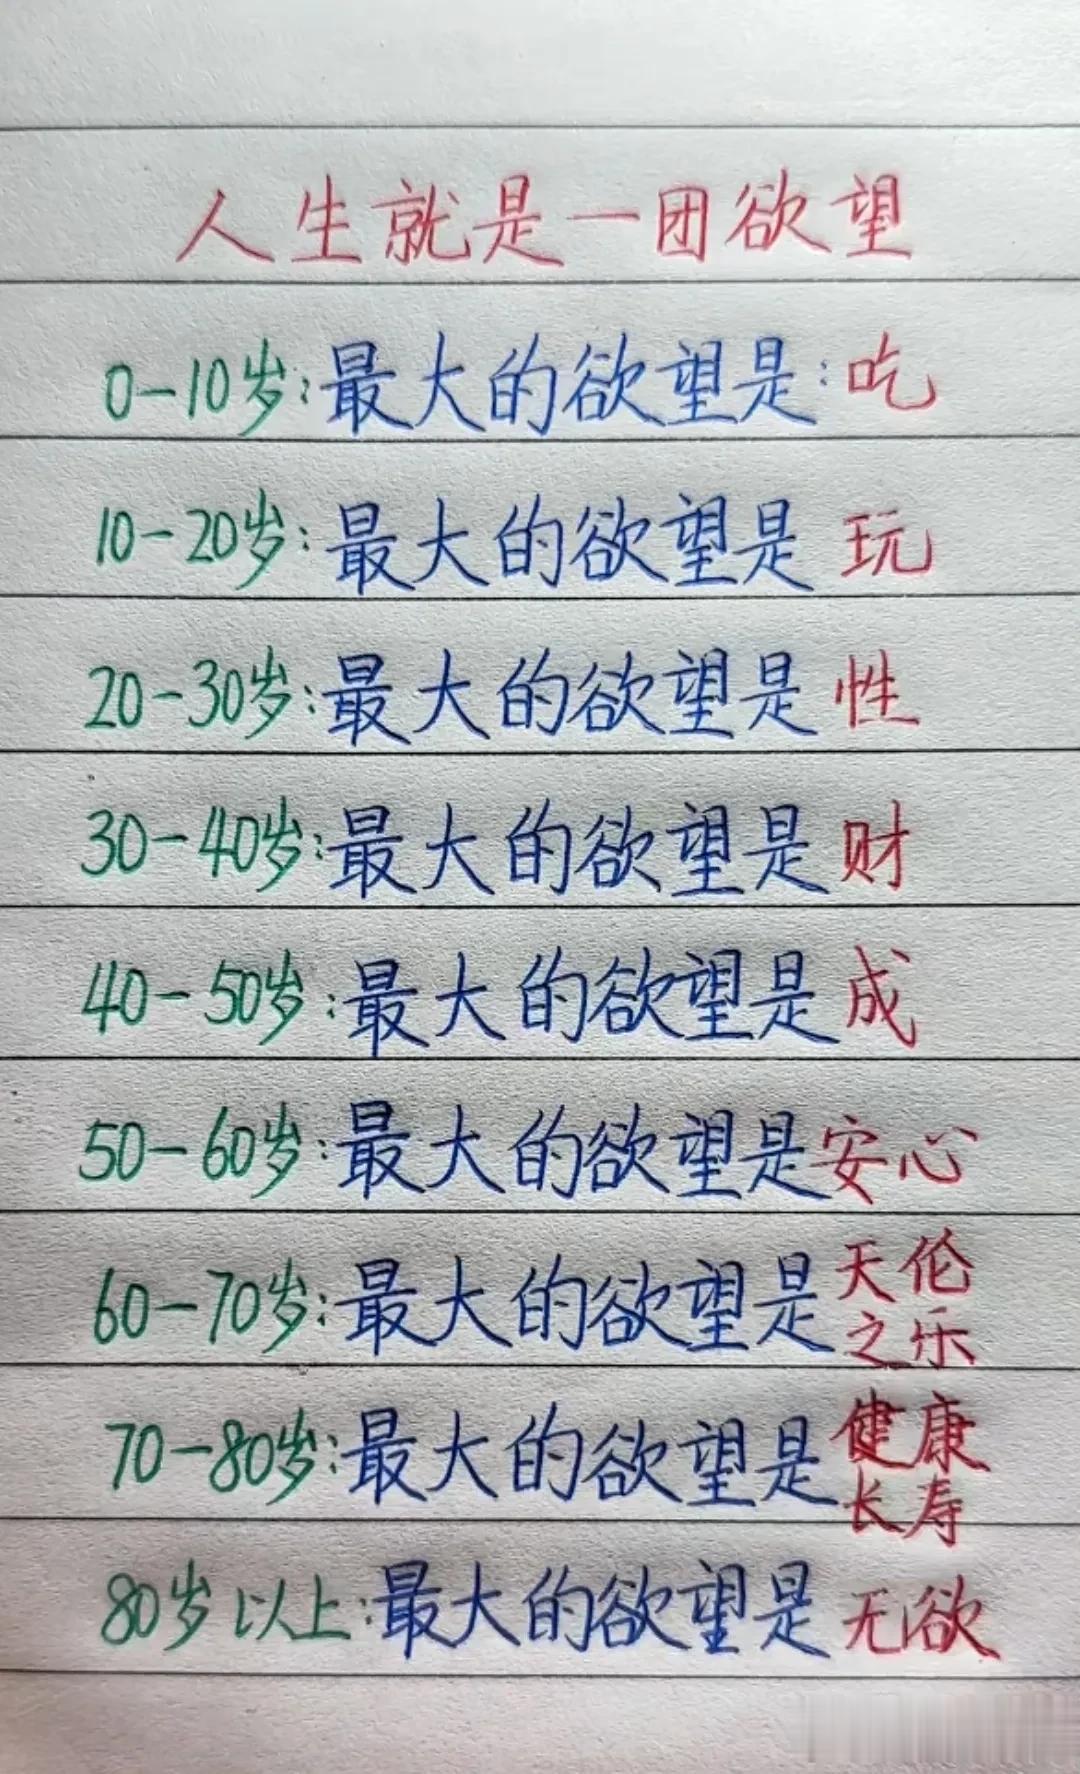 人生就是一团欲望
0-10岁:最大的欲望是:吃
10-20岁:最大的欲望是 玩
20-30岁:最大的欲望是 性
30-40岁:最大的欲望是 财
40-50岁:最大的欲望是 成
50-60岁:最大的欲望是安心
60-70岁:最大的欲望是天伦之乐
70-80岁:最大的欲望是健康长寿
80岁以上:最大的欲望是 无欲